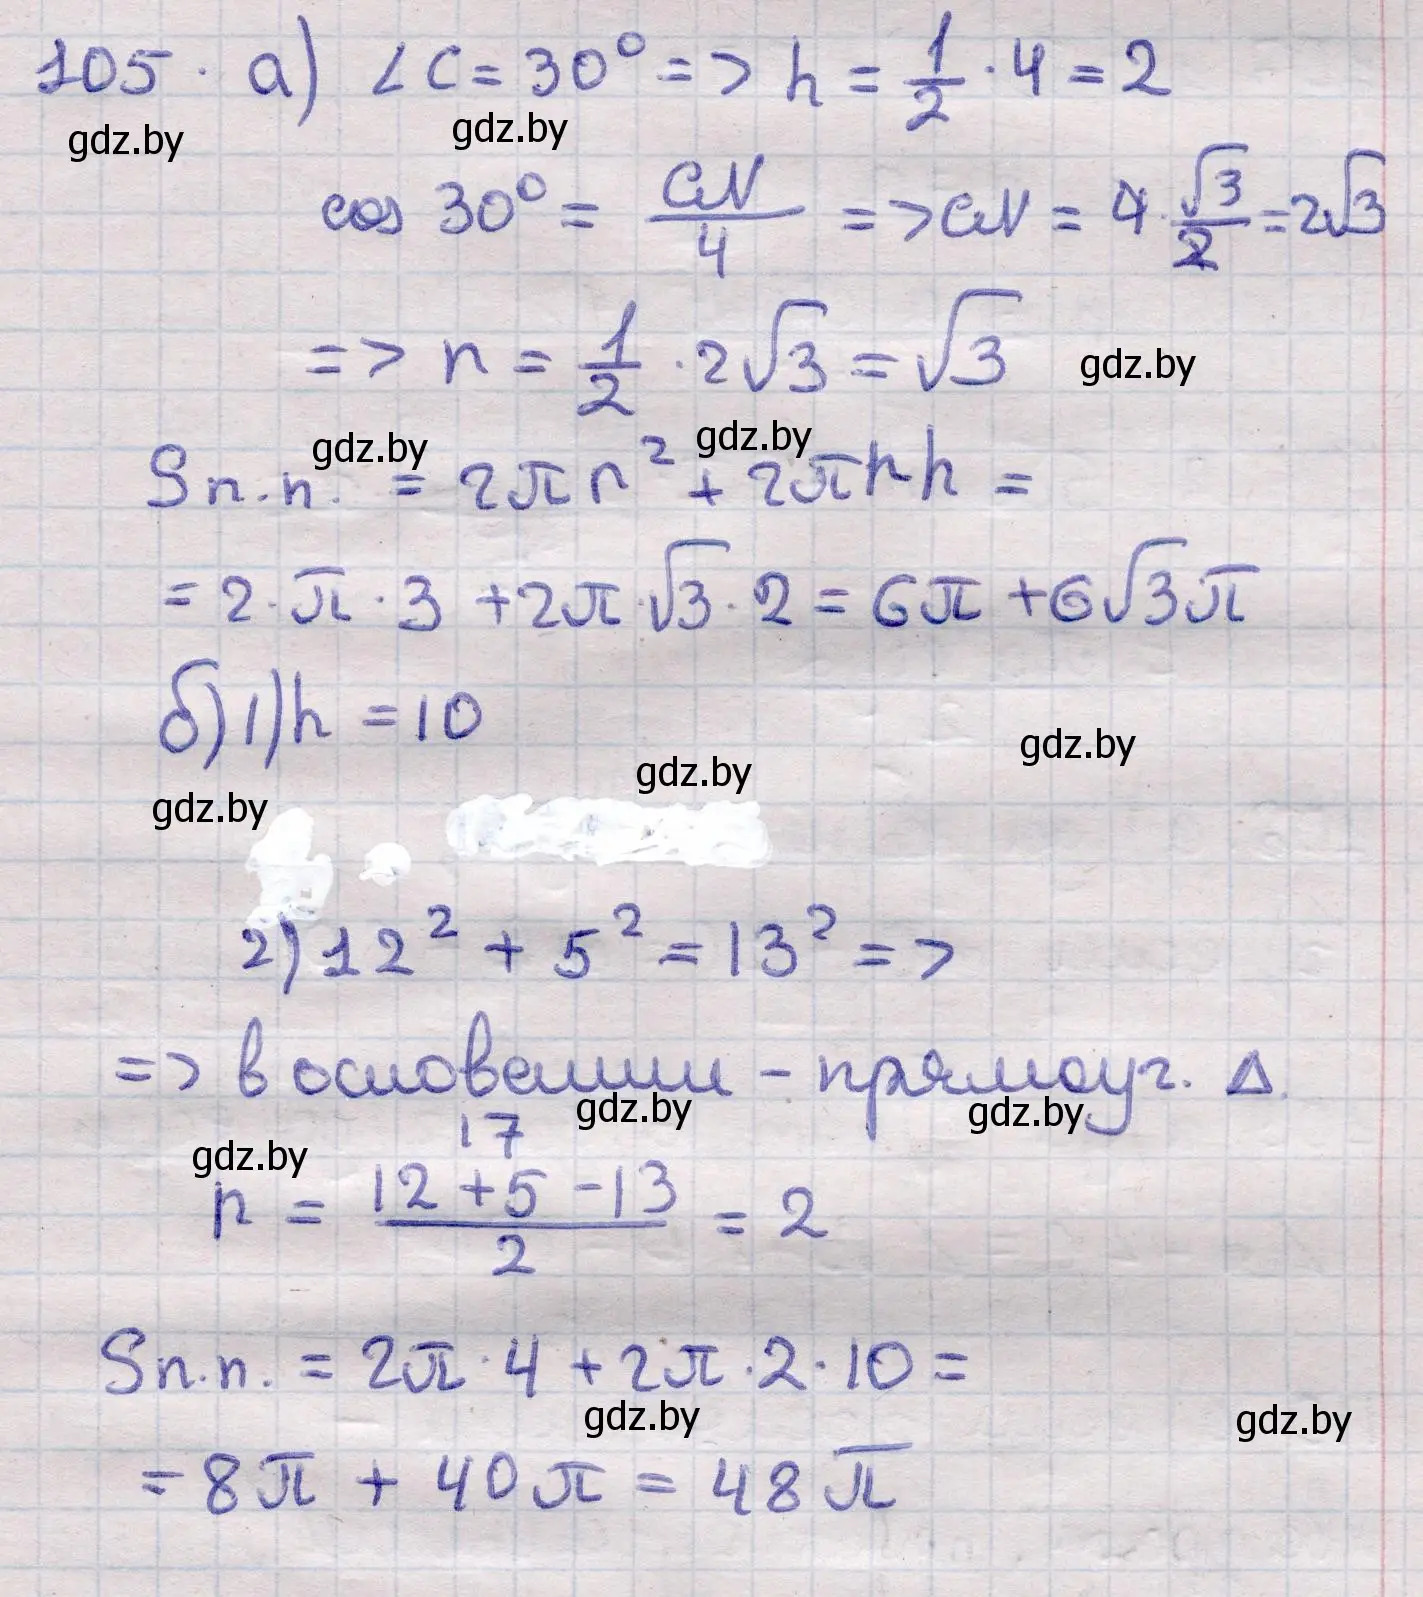 105. а) ∠C = 30° => h = 1/2 · 4 = 2
gdz.by gdz.by
cos 30° = CN/4 => CN = 4 · √3/2 = 2√3
=> r = 1/2 · 2√3 = √3
gdz.by
gdz.by gdz.by
Sп.п. = 2πr² + 2πrh =
= 2·π·3 + 2π·√3·2 = 6π + 6√3π
б) 1) h = 10
gdz.by
gdz.by
gdz.by
2) 12² + 5² = 13² =>
=> в основании – прямоуг. Δ.
gdz.by gdz.by
17
gdz.by
r = (12 + 5 - 13)/2 = 2
Sп.п. = 2π·4 + 2π·2·10 =
gdz.by gdz.by
= 8π + 40π = 48π